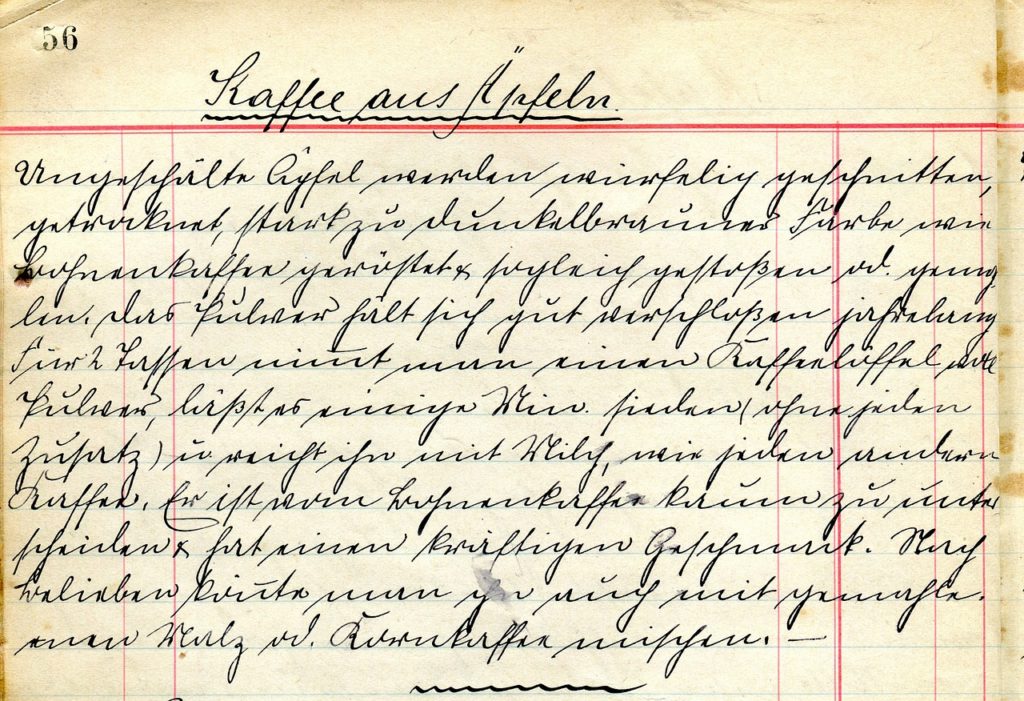 56
Kaffee aus Äpfeln.
Ungeschälte Äpfel werden würfelig geschnitten,
getrocknet, stark zu dunkelbrauner Farbe wie
Bohnenkaffee geröstet & sogleich gestoßen od. gema¬
len. Das Pulver hält sich gut verschloßen jahrelang
Für 2 Tassen nim̅t man einen Kaffeelöffel voll
Pulver, läßt es einige Min. sieden (ohne jeden
Zusatz) u. reicht ihn mit Milch, wie jeden andern
Kaffee. Er ist vom Bohnenkaffee kaum zu unter
scheiden & hat einen kräftigen Geschmack. Nach
Belieben kön̅te man ihn auch mit gemahle.
nen Malz od. Kornkaffee mischen. —